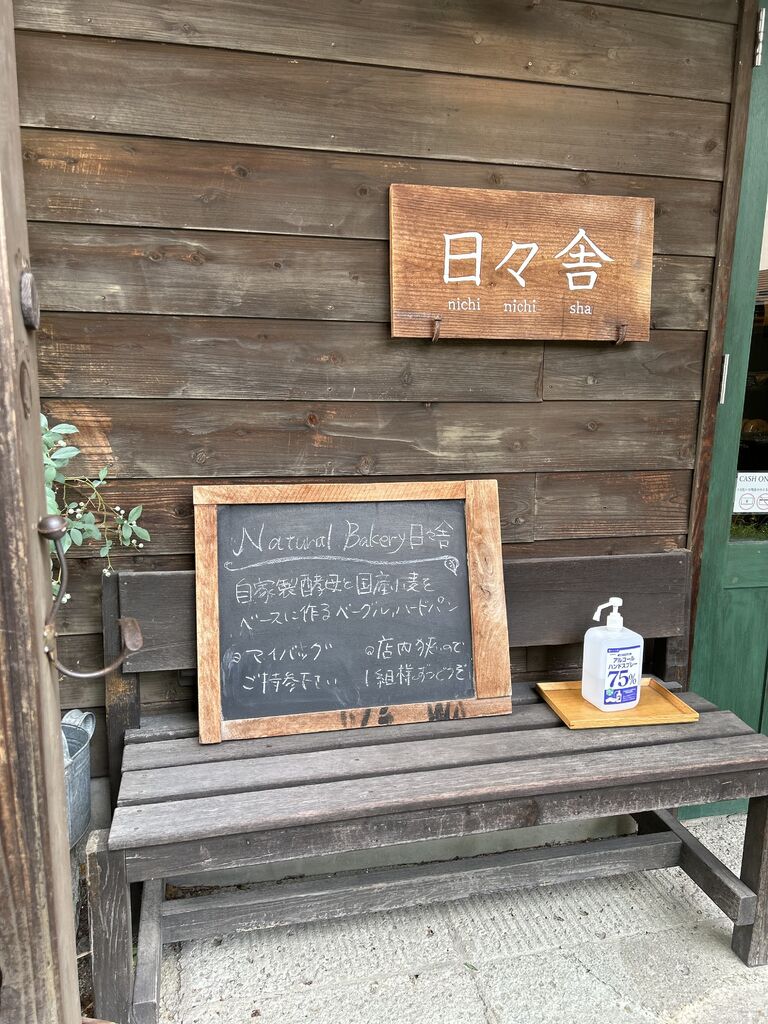 日々舎
nichi nichi sha
Natural Bakery 日々舎
自家製酵母と国産小麦を
ベースに作るベーグル、ハードパン
マイバッグ
ご持参下さい
店内狭いので
1組様ずつどうぞ
アルコール
ハンドスプレー
75%
CASH ON